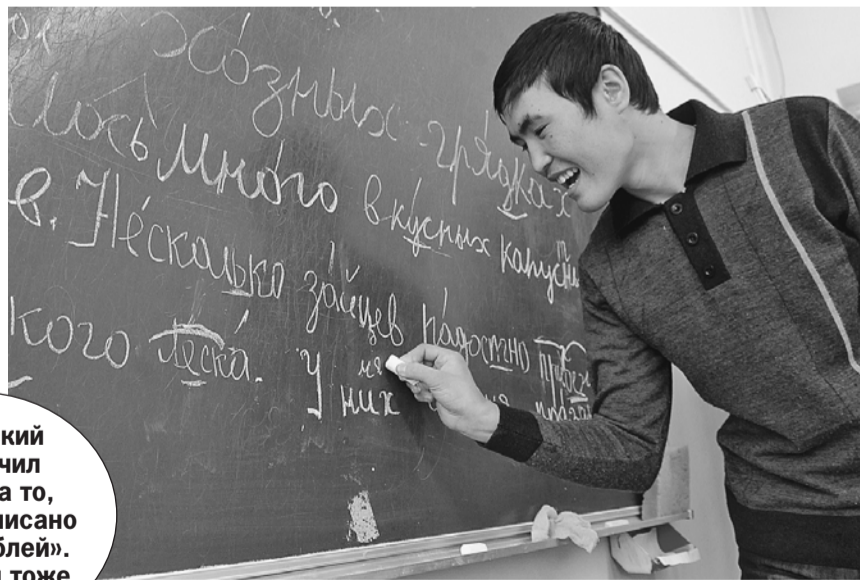 озных грядках
лось много вкусных капустн
в. Не́сколько зайцев радостно
кого леска́. У них
кий
чил
а то,
писано
блей».
тоже